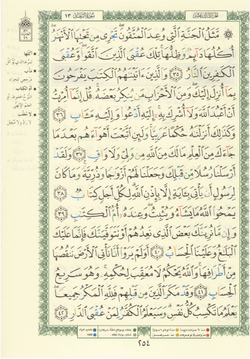 مَّثَلُ الْجَنَّةِ الَّتِي وُعِدَ الْمُتَّقُونَ تَجْرِي مِن تَحْتِهَا الْأَنْهَارُ
أُكُلُهَا دَائِمٌ وَظِلُّهَا تِلْكَ عُقْبَى الَّذِينَ اتَّقَوا وَّعُقْبَى
الْكَافِرِينَ النَّارُ ٣٥ وَالَّذِينَ آتَيْنَاهُمُ الْكِتَابَ يَفْرَحُونَ
بِمَا أُنزِلَ إِلَيْكَ وَمِنَ الْأَحْزَابِ مَن يُنكِرُ بَعْضَهُ قُلْ إِنَّمَا أُمِرْتُ
أَنْ أَعْبُدَ اللَّهَ وَلَا أُشْرِكَ بِهِ إِلَيْهِ أَدْعُو وَإِلَيْهِ مَآبِ ٣٦
وَكَذَلِكَ أَنزَلْنَاهُ حُكْمًا عَرَبِيًّا وَلَئِنِ اتَّبَعْتَ أَهْوَاءَهُم بَعْدَمَا
جَاءَكَ مِنَ الْعِلْمِ مَا لَكَ مِنَ اللَّهِ مِن وَلِيٍّ وَلَا وَاقٍ ٣٧ وَلَقَدْ
أَرْسَلْنَا رُسُلًا مِّن قَبْلِكَ وَجَعَلْنَا لَهُمْ أَزْوَاجًا وَذُرِّيَّةً وَمَا كَانَ
لِرَسُولٍ أَن يَأْتِيَ بِآيَةٍ إِلَّا بِإِذْنِ اللَّهِ لِكُلِّ أَجَلٍ كِتَابٌ ٣٨
يَمْحُو اللَّهُ مَا يَشَاءُ وَيُثْبِتُ وَعِندَهُ أُمُّ الْكِتَابِ ٣٩
وَإِن مَّا نُرِيَنَّكَ بَعْضَ الَّذِي نَعِدُهُمْ أَوْ نَتَوَفَّيَنَّكَ فَإِنَّمَا عَلَيْكَ
الْبَلَاغُ وَعَلَيْنَا الْحِسَابُ ٤٠ أَوَلَمْ يَرَوْا أَنَّا نَأْتِي الْأَرْضَ نَنقُصُهَا
مِنْ أَطْرَافِهَا وَاللَّهُ يَحْكُمُ لَا مُعَقِّبَ لِحُكْمِهِ وَهُوَ سَرِيعُ
الْحِسَابِ ٤١ وَقَدْ مَكَرَ الَّذِينَ مِن قَبْلِهِمْ فَلِلَّهِ الْمَكْرُ جَمِيعًا
يَعْلَمُ مَا تَكْسِبُ كُلُّ نَفْسٍ وَسَيَعْلَمُ الْكُفَّارُ لِمَنْ عُقْبَى الدَّارِ ٤٢
٢٥٤